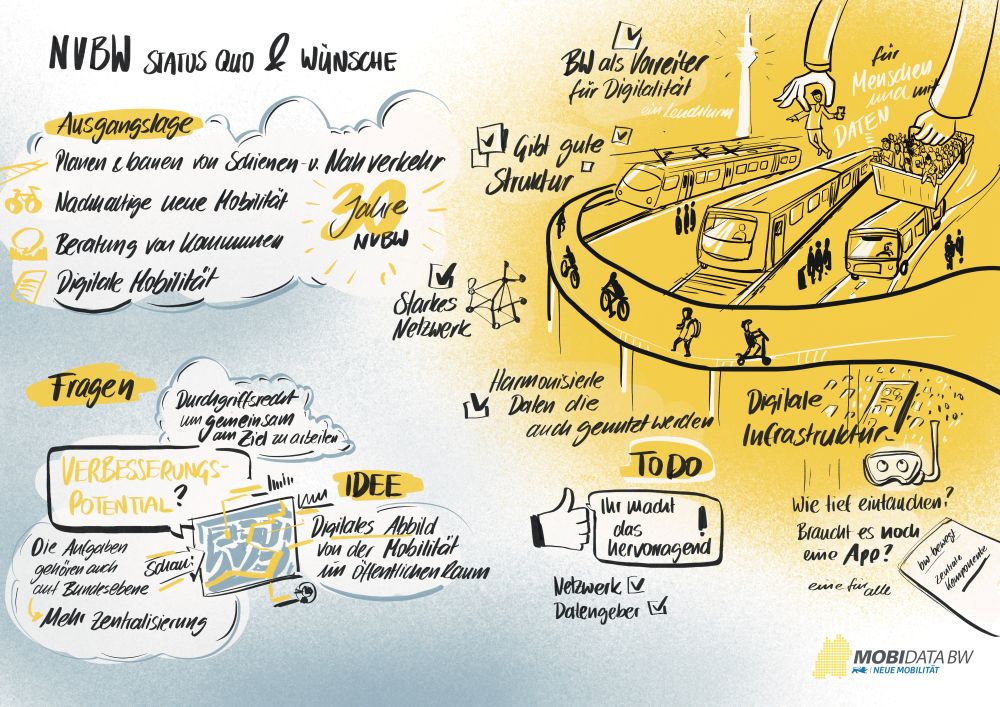 NVBW STATUS QUO & WÜNSCHE
Ausgangslage
Planen & bauen von Schienen- u. Nahverkehr
Nachhaltige neue Mobilität
Beratung von Kommunen
Digitale Mobilität
30
Jahre
NVBW
BW als Vorreiter
für Digitalität
ein Leuchtturm
Gibt gute
Struktur
Starkes
Netzwerk
Harmonisierte
Daten die
auch genutzt werden
für
Menschen
und mit
DATEN
Fragen
Durchgriffsrecht
um gemeinsam
am Ziel zu arbeiten
VERBESSERUNGS-
POTENTIAL?
Die Aufgaben
gehören auch
auf Bundesebene
Mehr Zentralisierung
Schau:
IDEE
Digitales Abbild
von der Mobilität
im öffentlichen Raum
TO DO
Ihr macht
das
hervorragend
!
Netzwerk
Datengeber
Digitale
Infrastruktur
Wie tief eintauchen?
Braucht es noch
eine App?
eine für alle
bw bewegt
zentrale
Komponente
MOBIDATA BW
NEUE MOBILITÄT